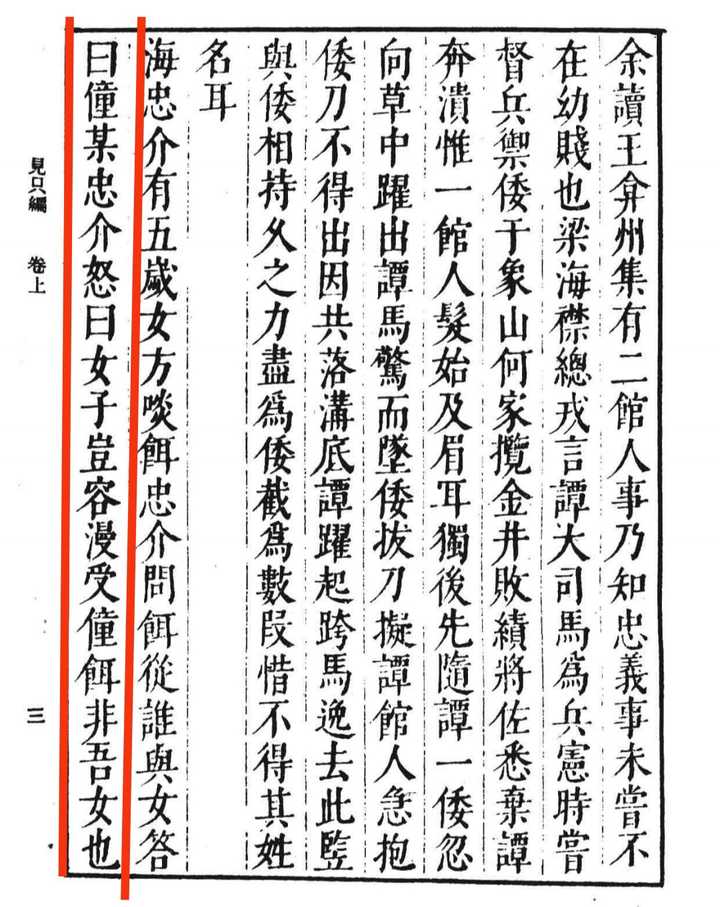 余讀王弇州集有二館人事乃知忠義事未嘗不
在幼賤也梁海襟總戎言譚大司馬為兵憲時嘗
督兵禦倭于象山何家攬金井敗績將佐悉棄譚
奔潰惟一館人髮始及眉耳獨後先隨譚一倭忽
向草中躍出譚馬驚而墜倭拔刀擬譚館人急抱
倭刀不得出因共落溝底譚躍起跨馬逸去此豎
與倭相持久之力盡為倭截為數段惜不得其姓
名耳
海忠介有五歲女方啖餌忠介問餌從誰與女答
曰僮某忠介怒曰女子豈容漫受僮餌非吾女也
見只編 卷上 三